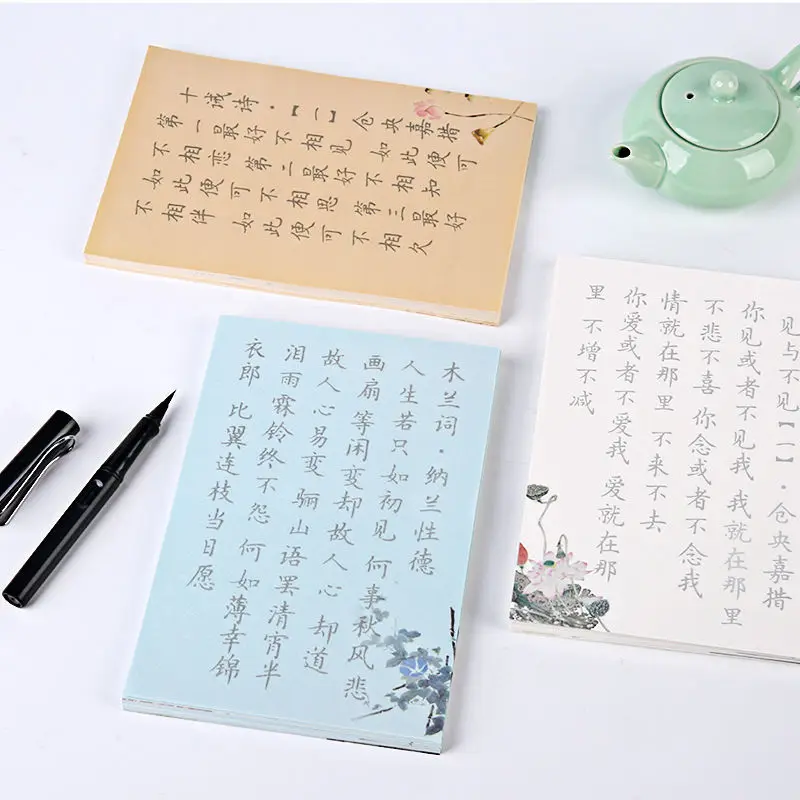 十诫诗·【一】 仓央嘉措
第一最好不相见 如此便可
不相恋 第二最好不相知
如此便可不相思 第三最好
不相伴 如此便可不相久
木兰词·纳兰性德
人生若只如初见 何事秋风悲
画扇 等闲变却故人心 却道
故人心易变 骊山语罢清宵半
泪雨霖铃终不怨 何如薄幸锦
衣郎 比翼连枝当日愿
见与不见【一】·仓央嘉措
你见或者不见我 我就在那里
不悲不喜 你念或者不念我
情就在那里 不来不去
你爱或者不爱我 爱就在那
里 不增不减